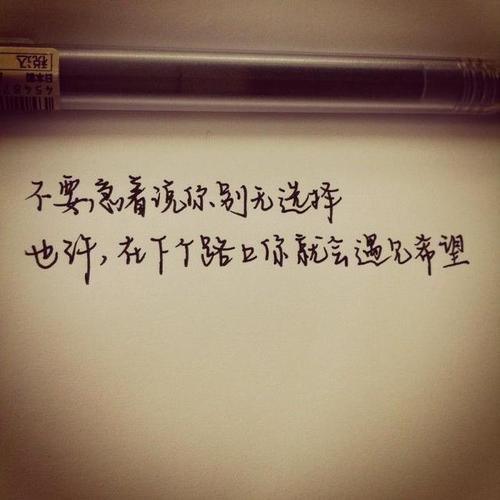 税込
日本製
不要急着说你别无选择
也许，在下个路口你就会遇见希望